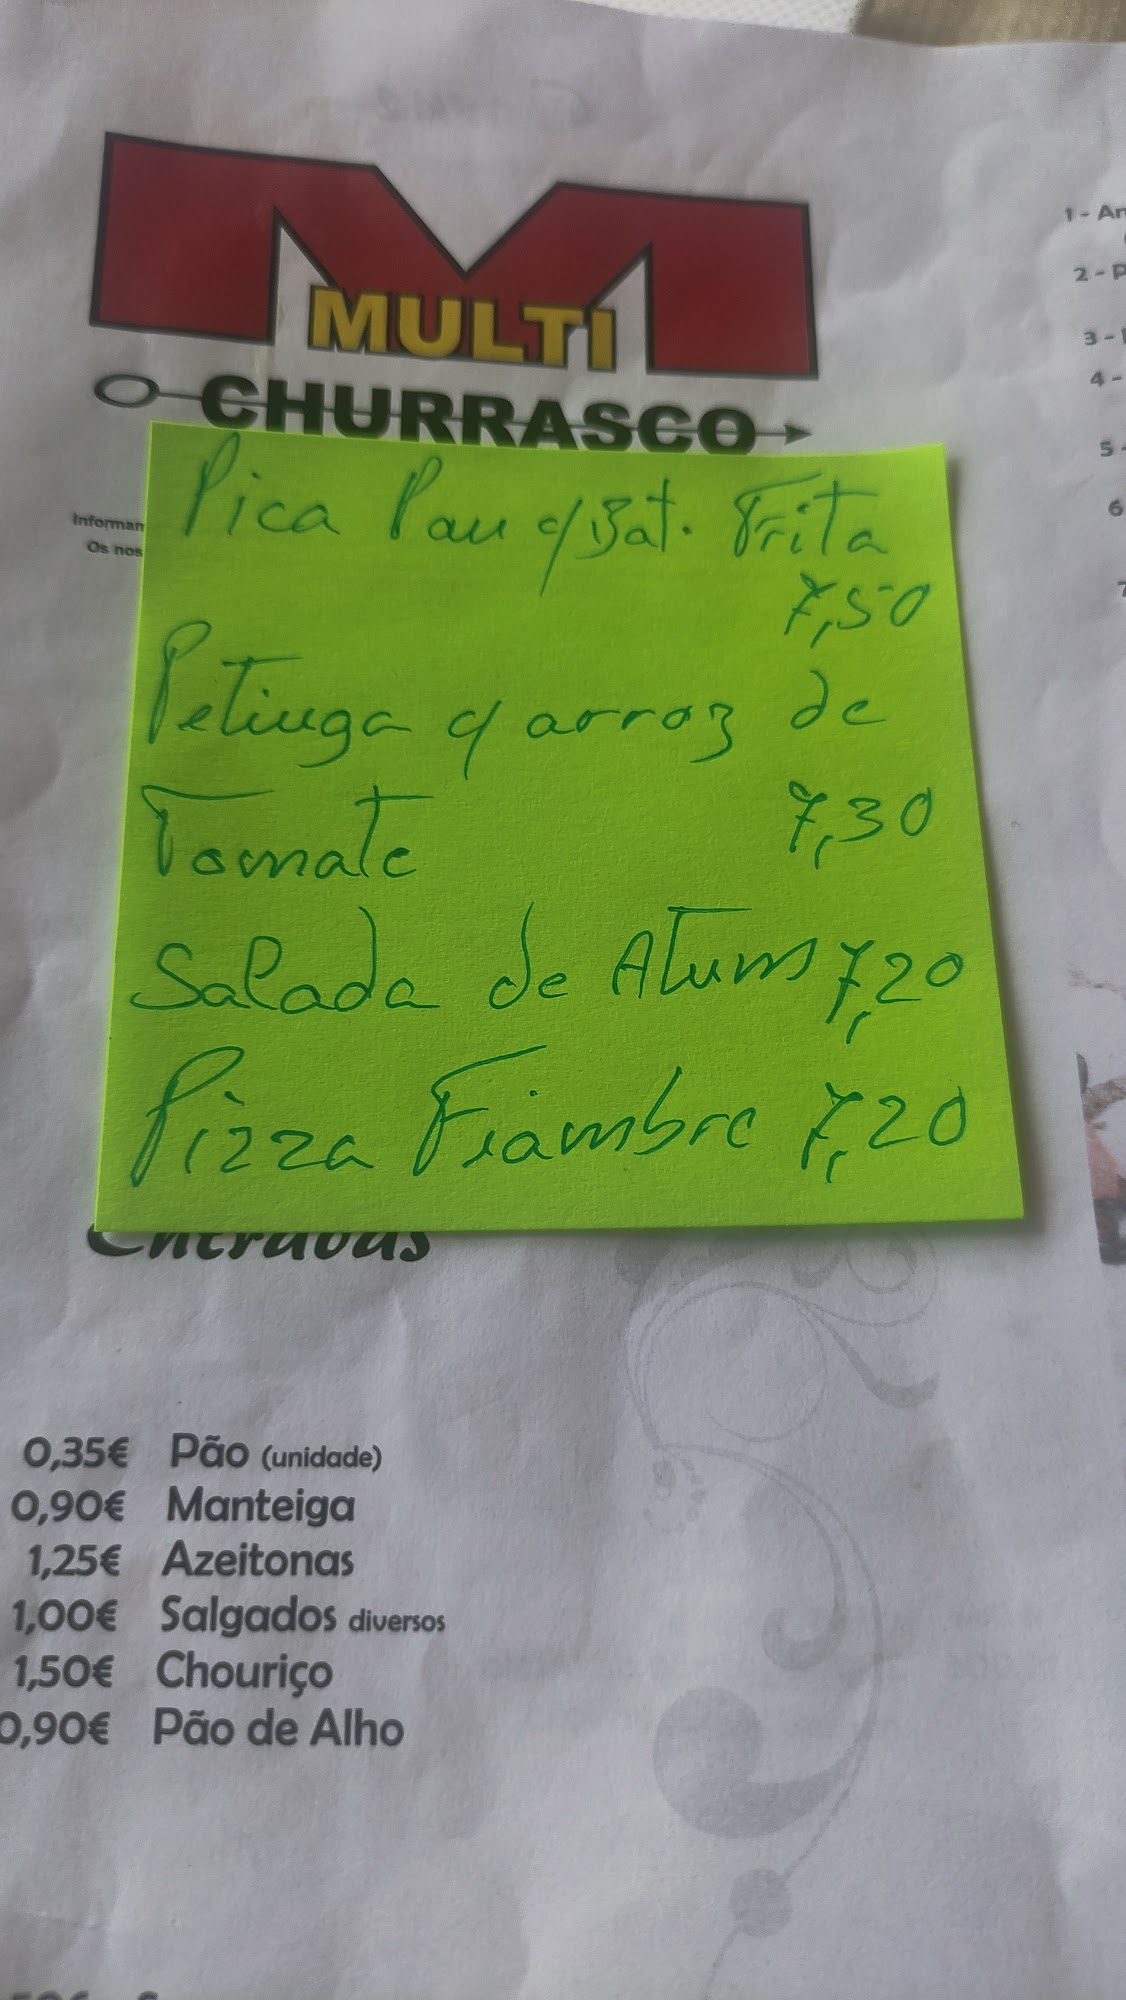 MULTI
CHURRASCO
Informan
Os nos
Pica Pau c/Bat. Frita
7,50
Petinga c/ arroz de
Tomate 7,30
Salada de Atum 7,20
Pizza Fiambre 7,20
Entradas
0,35€ Pão (unidade)
0,90€ Manteiga
1,25€ Azeitonas
1,00€ Salgados diversos
1,50€ Chouriço
0,90€ Pão de Alho
1 - Ar
2 - P
3 -
4 -
5 -
6
7